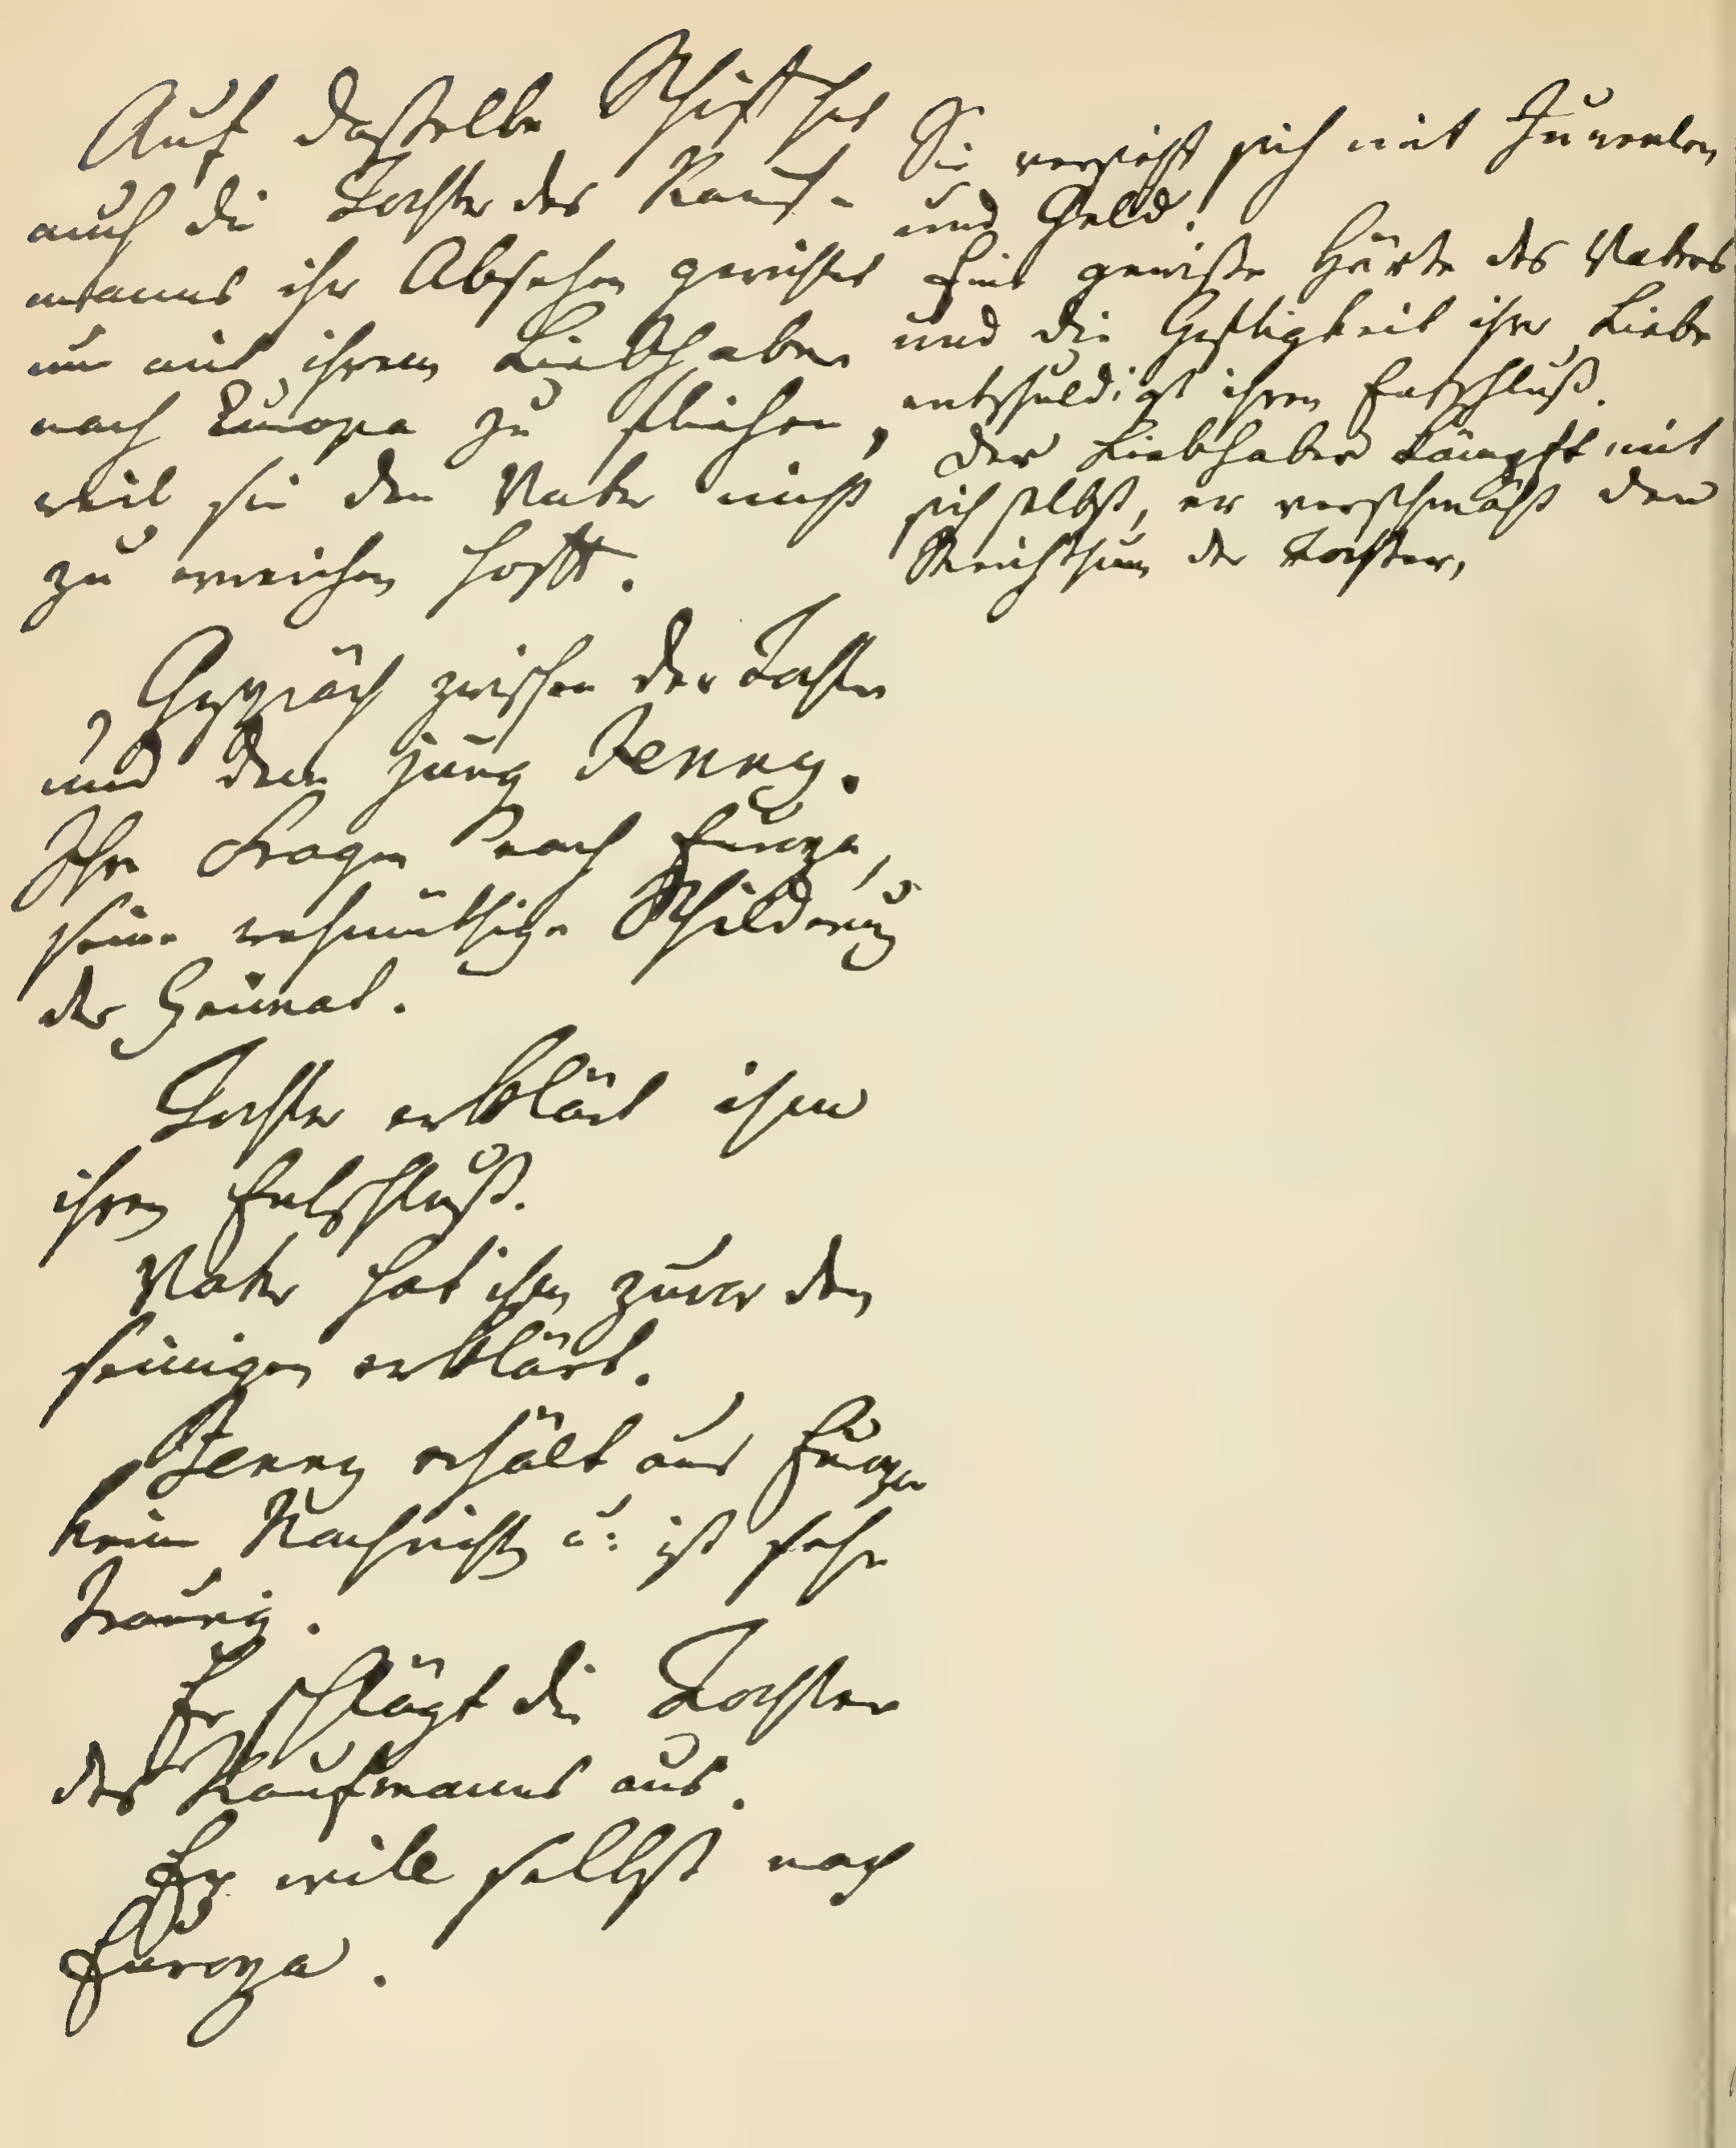 Auf dasselbe Schiff hat
auch die Tochter des Kauf-
manns ihr Absehen gerichtet
um mit ihrem Liebhaber
nach Europa zu fliehen,
weil sie den Vater nicht
zu erweichen hofft.
Gespräch zwischen der Tochter
und dem jung Jenny.
Ihre Fragen nach Europa,
seine wehmüthige Schilderung
der Heimat.
Tochter erklärt ihm
ihren Entschluß.
Vater hat ihm zuvor den
seinigen erklärt.
Jenny erhält aus Europa
keine Nachrichten u: ist sehr
traurig.
Er schlägt die Tochter
des Kaufmanns aus.
Er will selbst nach
Europa.
Sie versieht sich mit Juwelen
und Geld.
Eine gewisse Härte des Vaters
und die Heftigkeit ihrer Liebe
entschuldigt ihren Entschluß.
Der Liebhaber kämpft mit
sich selbst, er verschmäht den
Reichthum der Tochter,